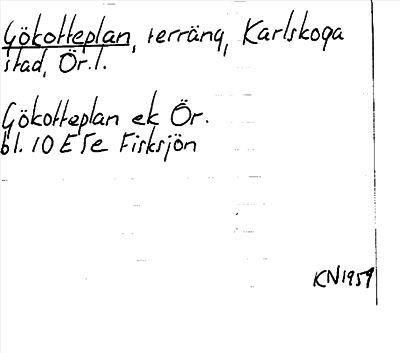 Gökotteplan, terräng, Karlskoga
stad, Ör.l.
Gökotteplan ek Ör.
bl. 10 E 5e Fisksjön
KN1959